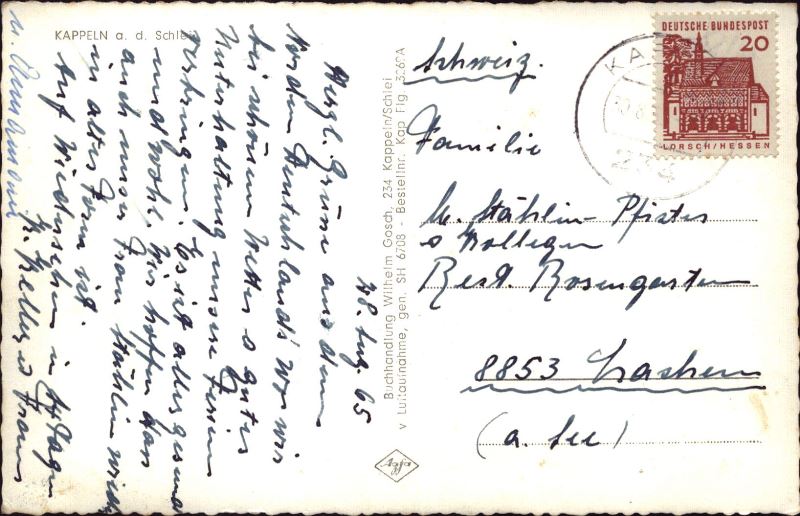 KAPPELN a. d. Schlei
28. Aug. 65
Herzl. Grüsse aus dem
Norden Deutschlands wo wir
bei schönem Wetter & guter
Unterhaltung unsere Ferien
verbringen. Es ist alles gesund
und wohl. Wir hoffen dass
auch unser Frau Stählin wieder
in alter Form ist.
Auf Wiedersehen in Tagen
H. Keller & Frau
u.
Buchhandlung Wilhelm Gosch, 234 Kappeln/Schlei
v Luftaufnahme, gen. SH 6708 - Bestellnr. Kap Flg. 3269A
Agfa
DEUTSCHE BUNDESPOST
20
LORSCH/HESSEN
KA
Schweiz.
Familie
W. Stählin-Pfister
& Kollegen
Rest. Rosengarten
8853 Lachen
(a. See)